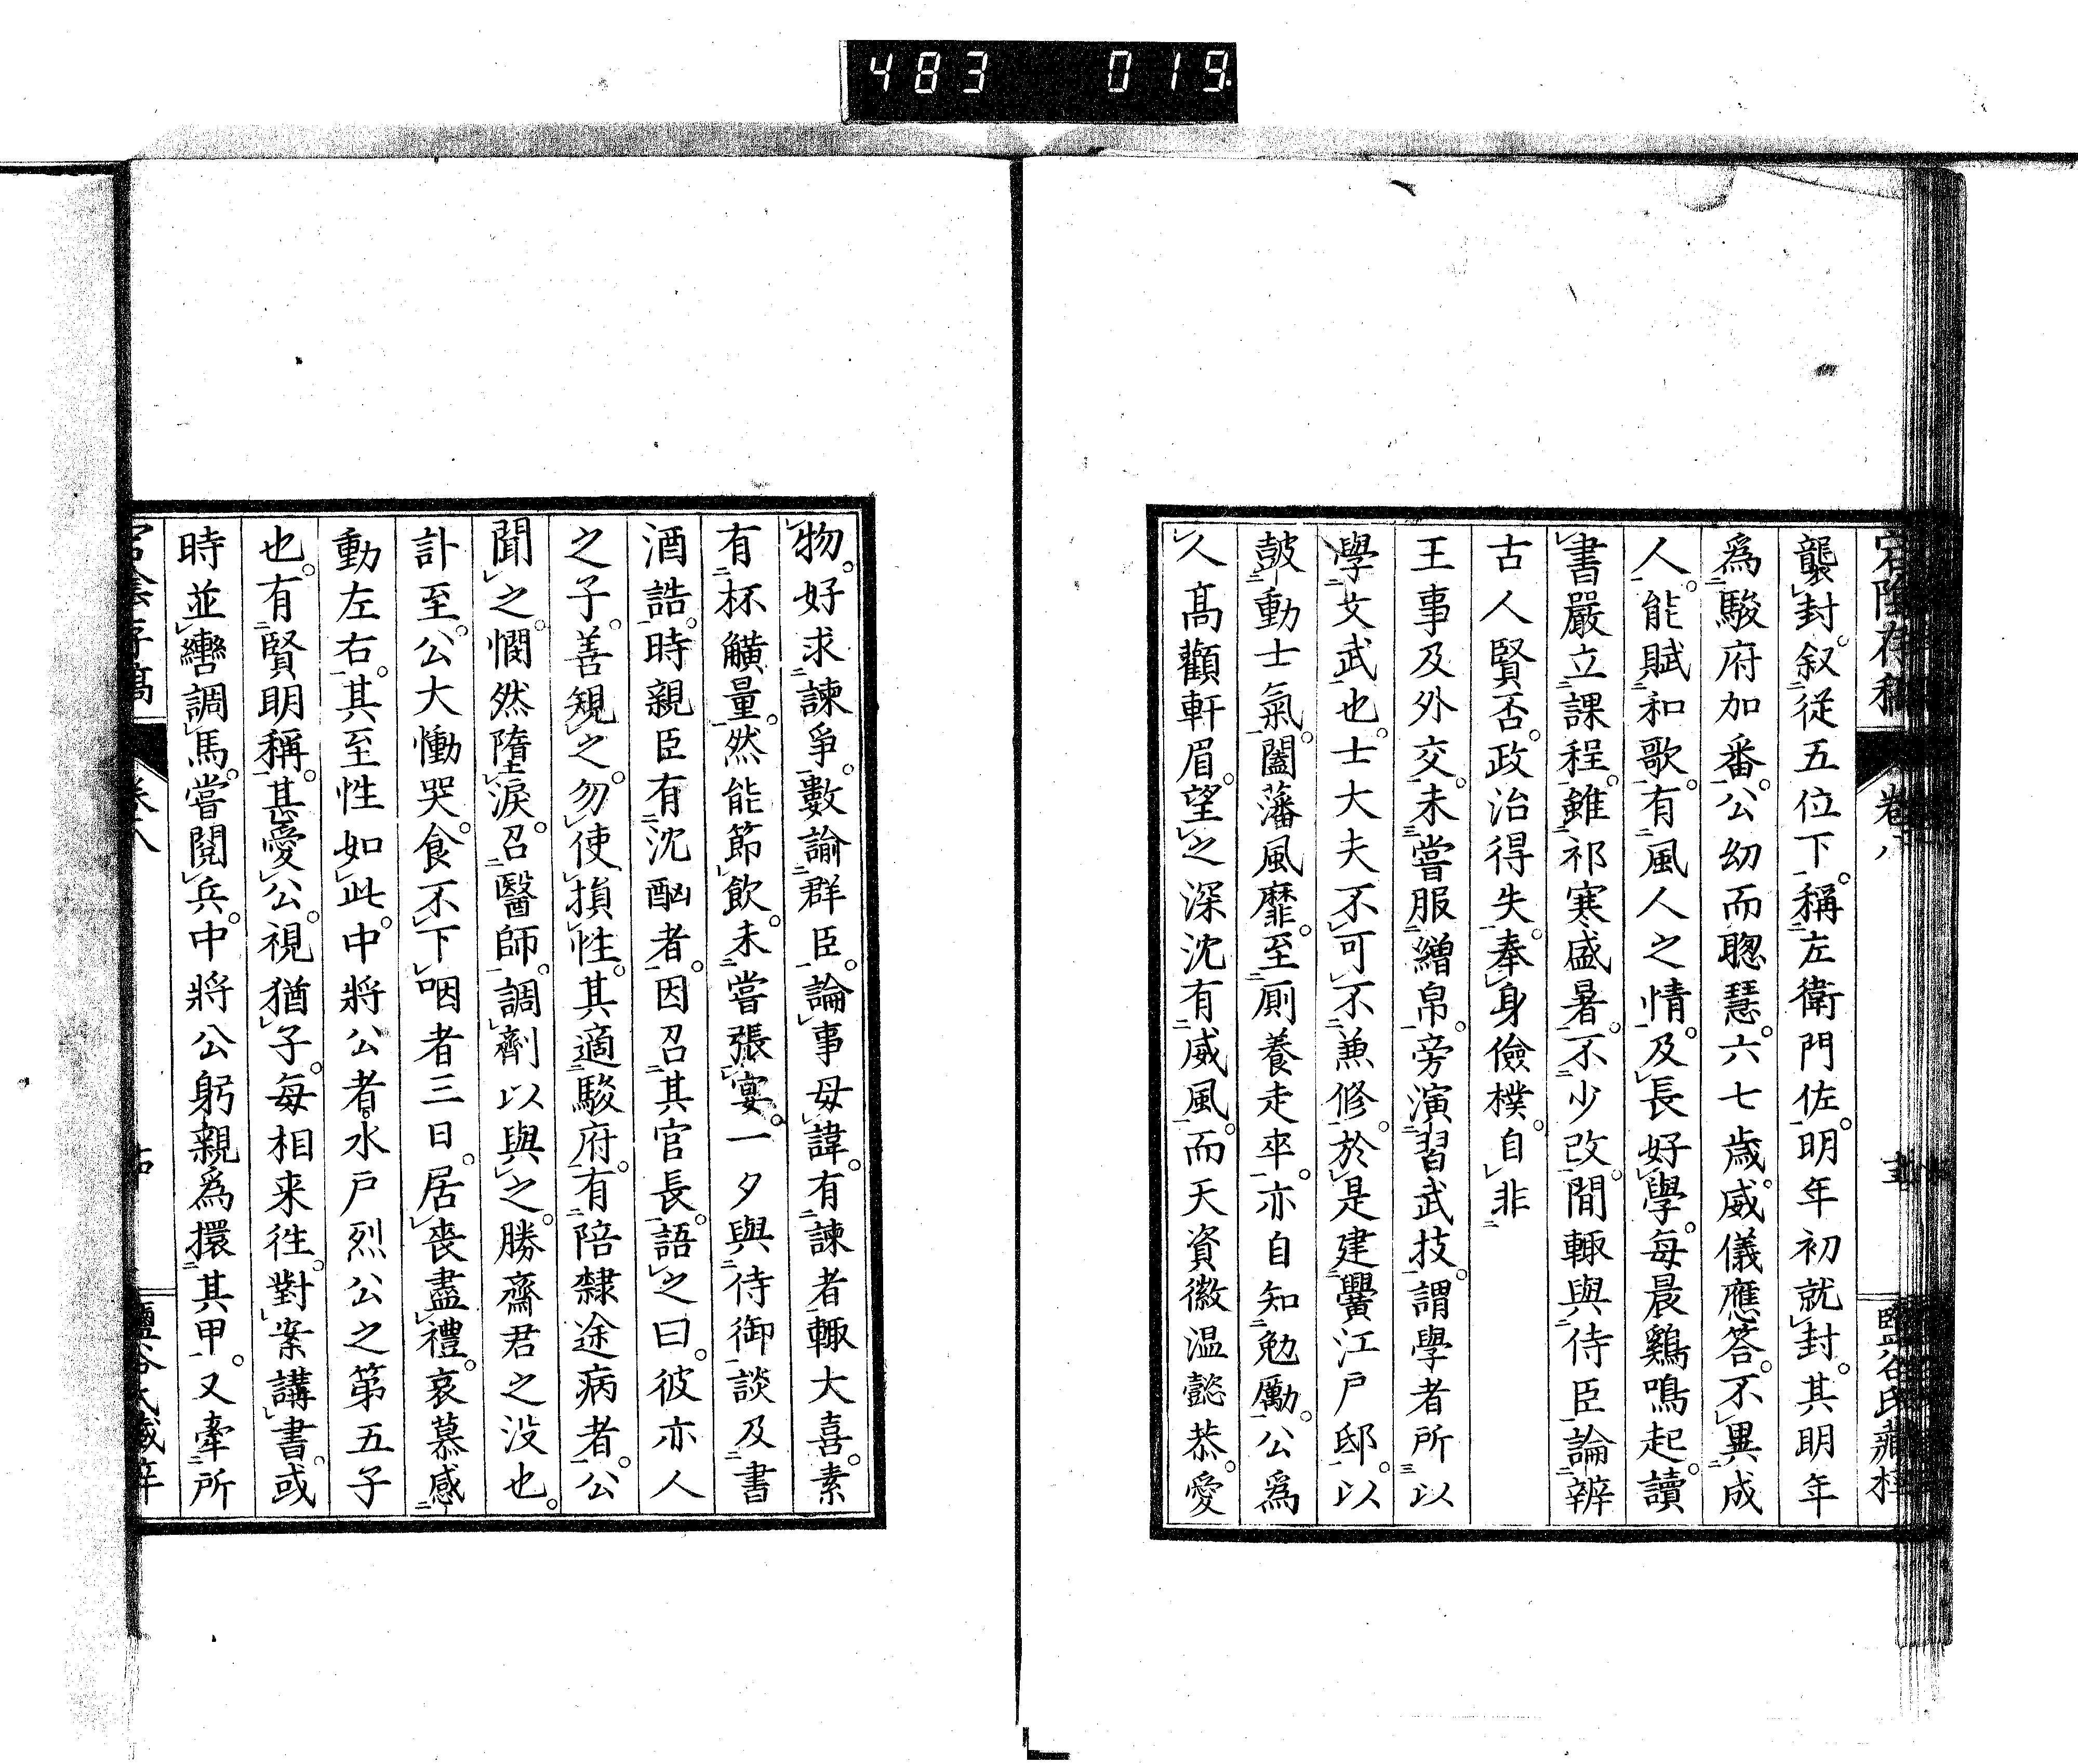 483 019
宕陰存稿 卷八 鹽谷氏藏梓
襲封。叙從五位下。稱左衛門佐。明年初就封。其明年
爲駿府加番。公幼而聰慧。六七歲。威儀應答。不異成
人。能賦和歌。有風人之情。及長好學。每晨鷄鳴起。讀
書嚴立課程。雖祁寒盛暑。不少改。間輙與侍臣論辨
古人賢否。政治得失。奉身儉樸。自非
王事及外交。未嘗服繒帛。旁演習武技。謂學者所以
學文武也。士大夫不可不兼修。於是建黌江戸邸。以
鼓動士氣。闔藩風靡。至厠養走卒。亦自知勉勵。公爲
人高顴軒眉。望之深沈有威風。而天資徽温懿恭。愛
物。好求諫爭。數諭群臣。論事毋諱。有諫者輙大喜。素
有杯觵量。然能節飲。未嘗張宴。一夕與侍御談及書
酒誥。時親臣有沈酗者。因召其官長。語之曰。彼亦人
之子。善規之。勿使損性。其適駿府。有陪隸途病者。公
聞之。憫然墮淚。召醫師。調劑以與之。勝齋君之没也。
訃至。公大慟哭。食不下咽者三日。居喪盡禮。哀慕感
動左右。其至性如此。中將公者。水戸烈公之第五子
也。有賢明稱。甚愛公。視猶子。每相来往。對案講書。或
時並轡調馬。嘗閱兵。中將公躬親爲擐其甲。又牽所
卷八